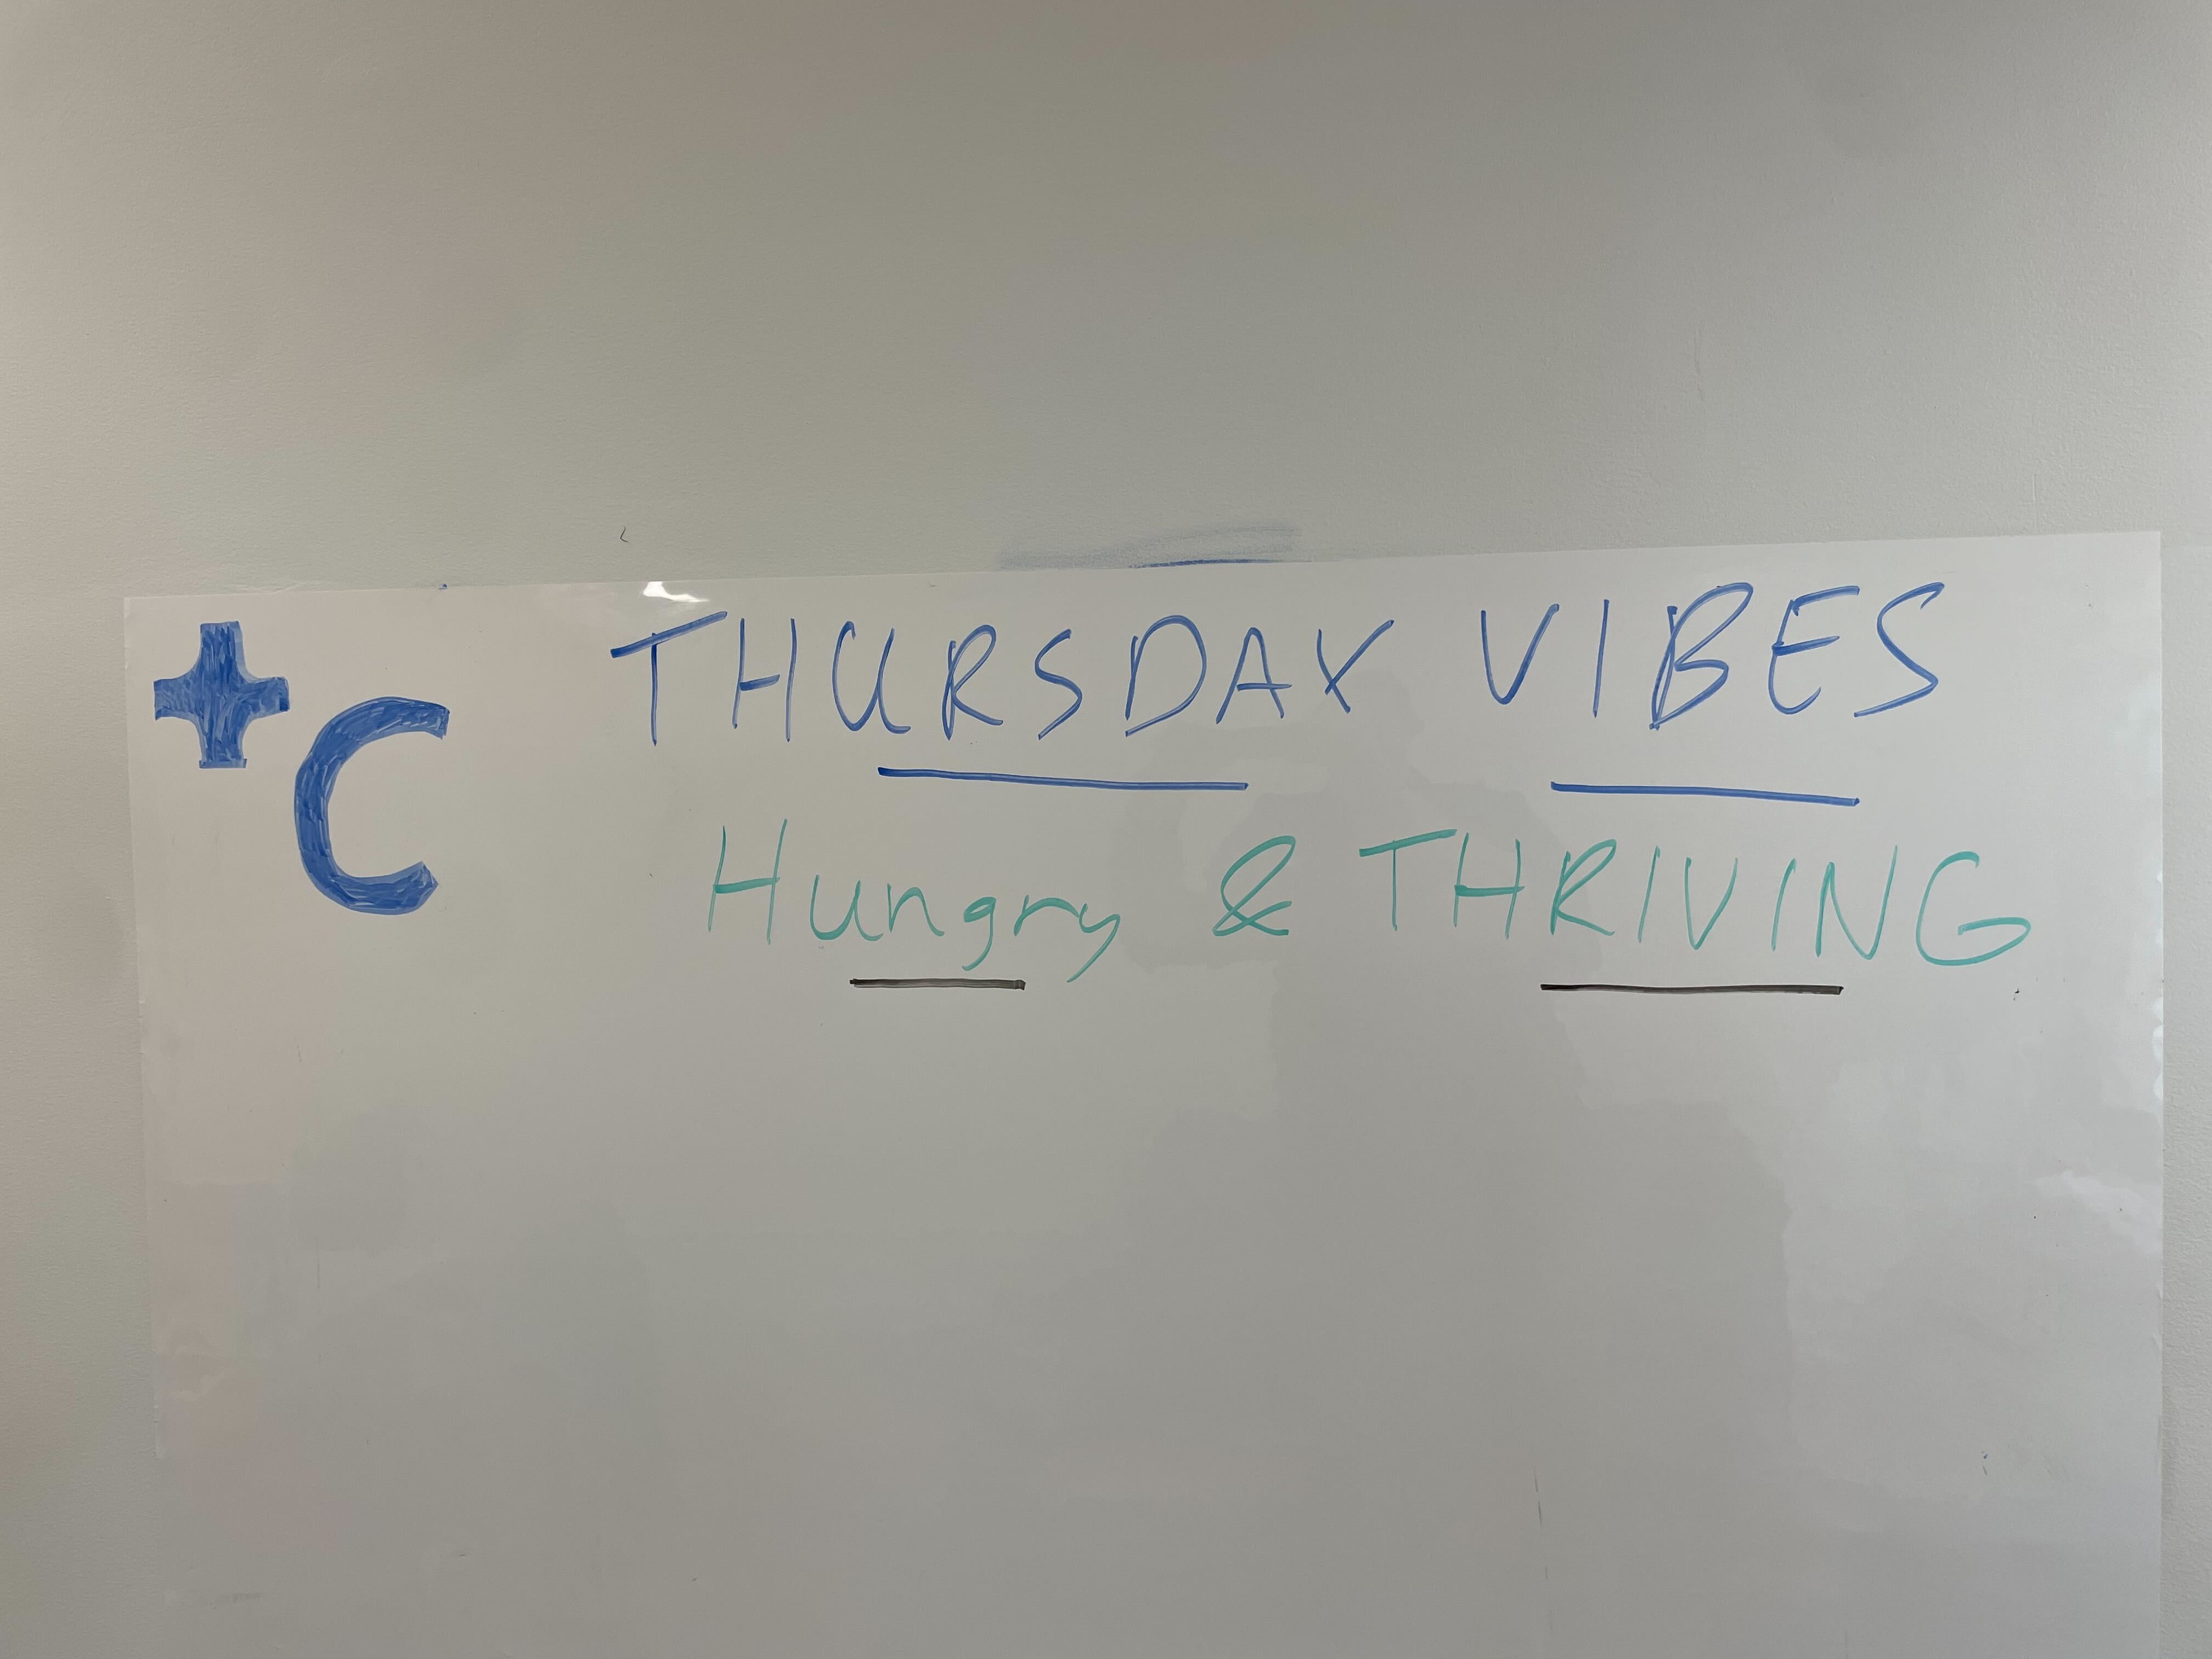 +C
THURSDAY VIBES
Hungry & THRIVING